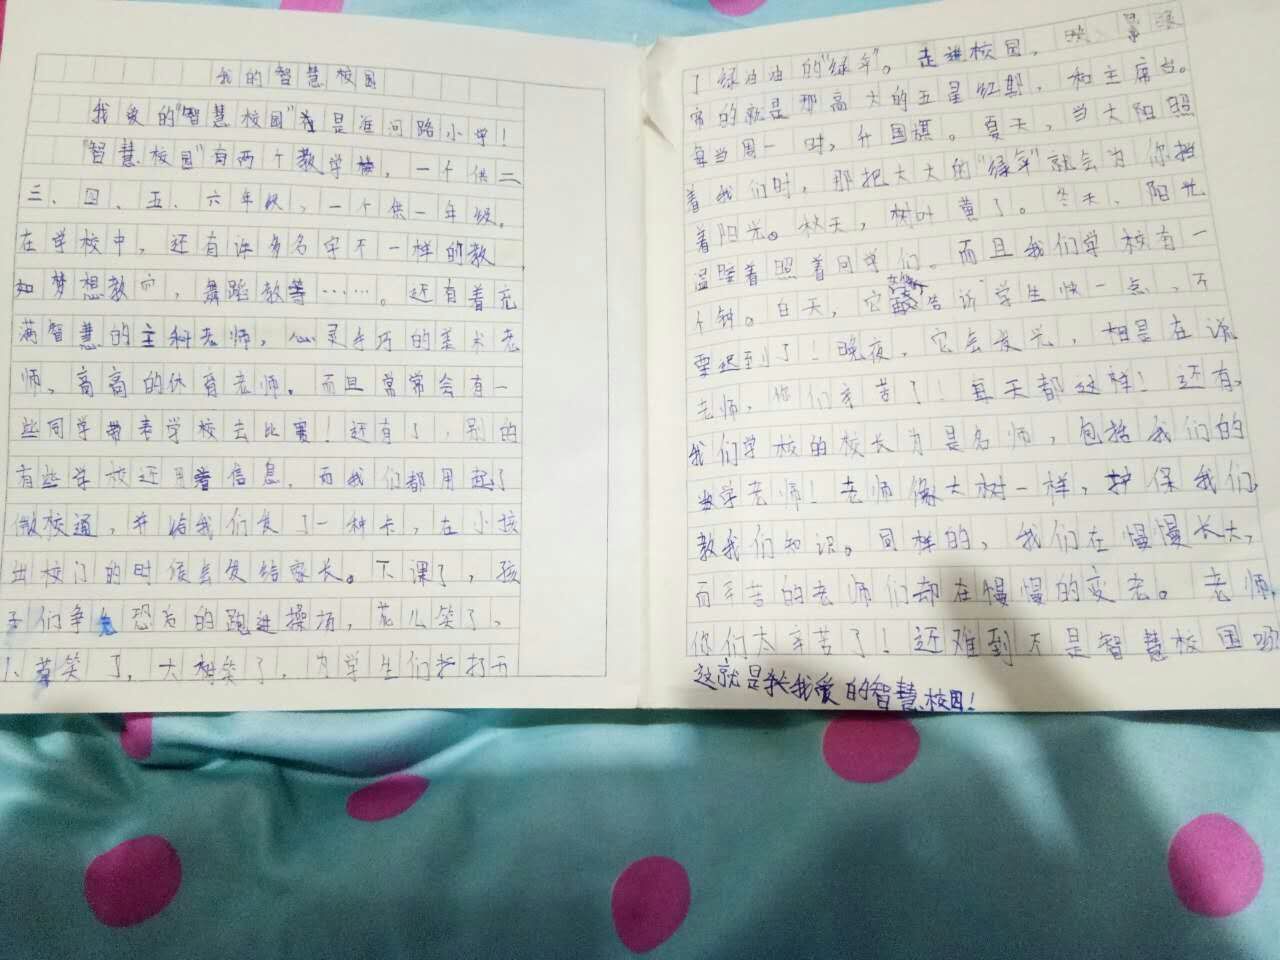 我的智慧校园
我爱的"智慧校园"是淮河路小学！
"智慧校园"有两个教学楼，一个供二
三、四、五、六年级，一个供一年级。
在学校中，还有许多名字不一样的教
如梦想教室，舞蹈教等……。还有着充
满智慧的主科老师，心灵手巧的美术老
师、高高的体育老师。而且常常会有一
些同学带来学校去比赛！还有了，别的
有些学校还用着信息，而我们都用起了
微校通，并给我们发了一种卡，在小孩
出校门的时候会发给家长。下课了，孩
子们争先恐后的跑进操场，花儿笑了、
小草笑了，大树笑了，为学生们打开
了绿油油的"绿伞"。走进校园，映
帘的就是那高大的五星红旗，和主席台。
每当周一时，升国旗。夏天，当太阳照
着我们时，那把大大的"绿伞"就会为你挡
着阳光。秋天，树叶黄了。冬天，阳光
温暖着照着同学们。而且我们学校有一
个钟。白天，它告诉学生快一点，不
要迟到了！晚夜，它会发光，相是在说
老师，你们辛苦了！每天都这样！还有，
我们学校的校长为是名师，包括我们的
数学老师！老师像大树一样，护保我们，
教我们知识。同样的，我们在慢慢长大，
而辛苦的老师们却在慢慢的变老。老师，
你们太辛苦了！这难到不是智慧校园吗
这就是我爱的智慧校园！